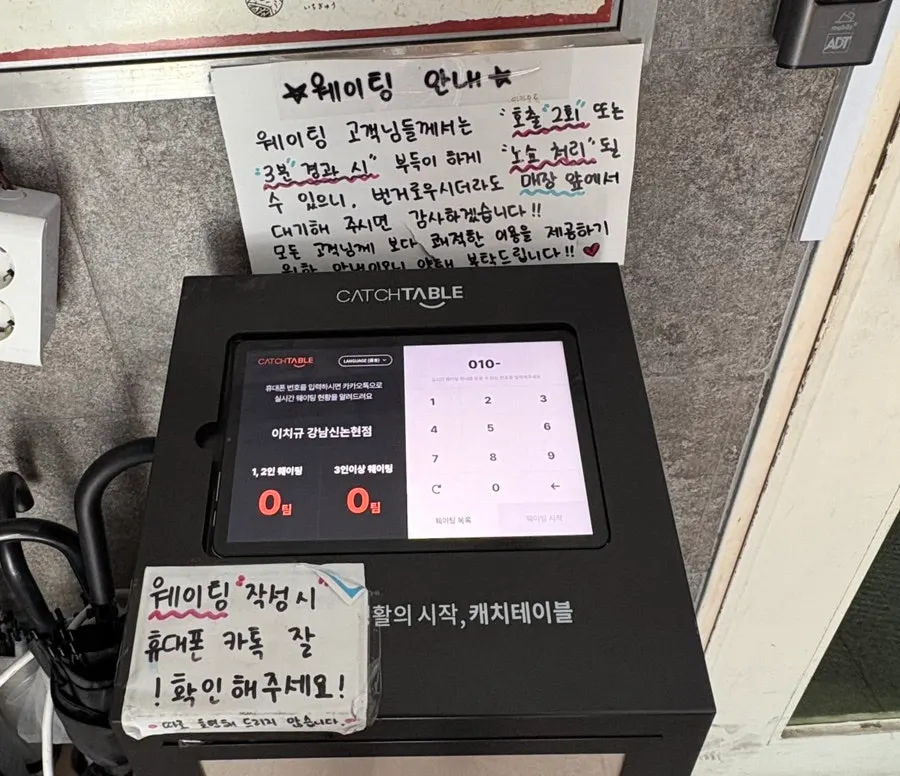 いちぎゅう
mobilis
ADT
☆웨이팅 안내☆
웨이팅 고객님들께서는 "호출 "2회" 또는
"3분" 경과 시" 부득이 하게 "노쇼 처리"될
수 있으니, 번거로우시더라도 매장 앞에서
대기해 주시면 감사하겠습니다!!
모든 고객님께 보다 쾌적한 이용을 제공하기
위한 안내이오니 양해 부탁드립니다!! ♥
CATCHTABLE
CATCHTABLE
LANGUAGE (語言)
휴대폰 번호를 입력하시면 카카오톡으로
실시간 웨이팅 현황을 알려드려요
이치규 강남신논현점
1, 2인 웨이팅
0팀
3인이상 웨이팅
0팀
010-
1 2 3
4 5 6
7 8 9
0 ←
웨이팅 목록
웨이팅 시작
활의 시작, 캐치테이블
웨이팅 "작성시"
휴대폰 카톡 잘
!확인해주세요!
따로 호명해 드리지 않습니다.